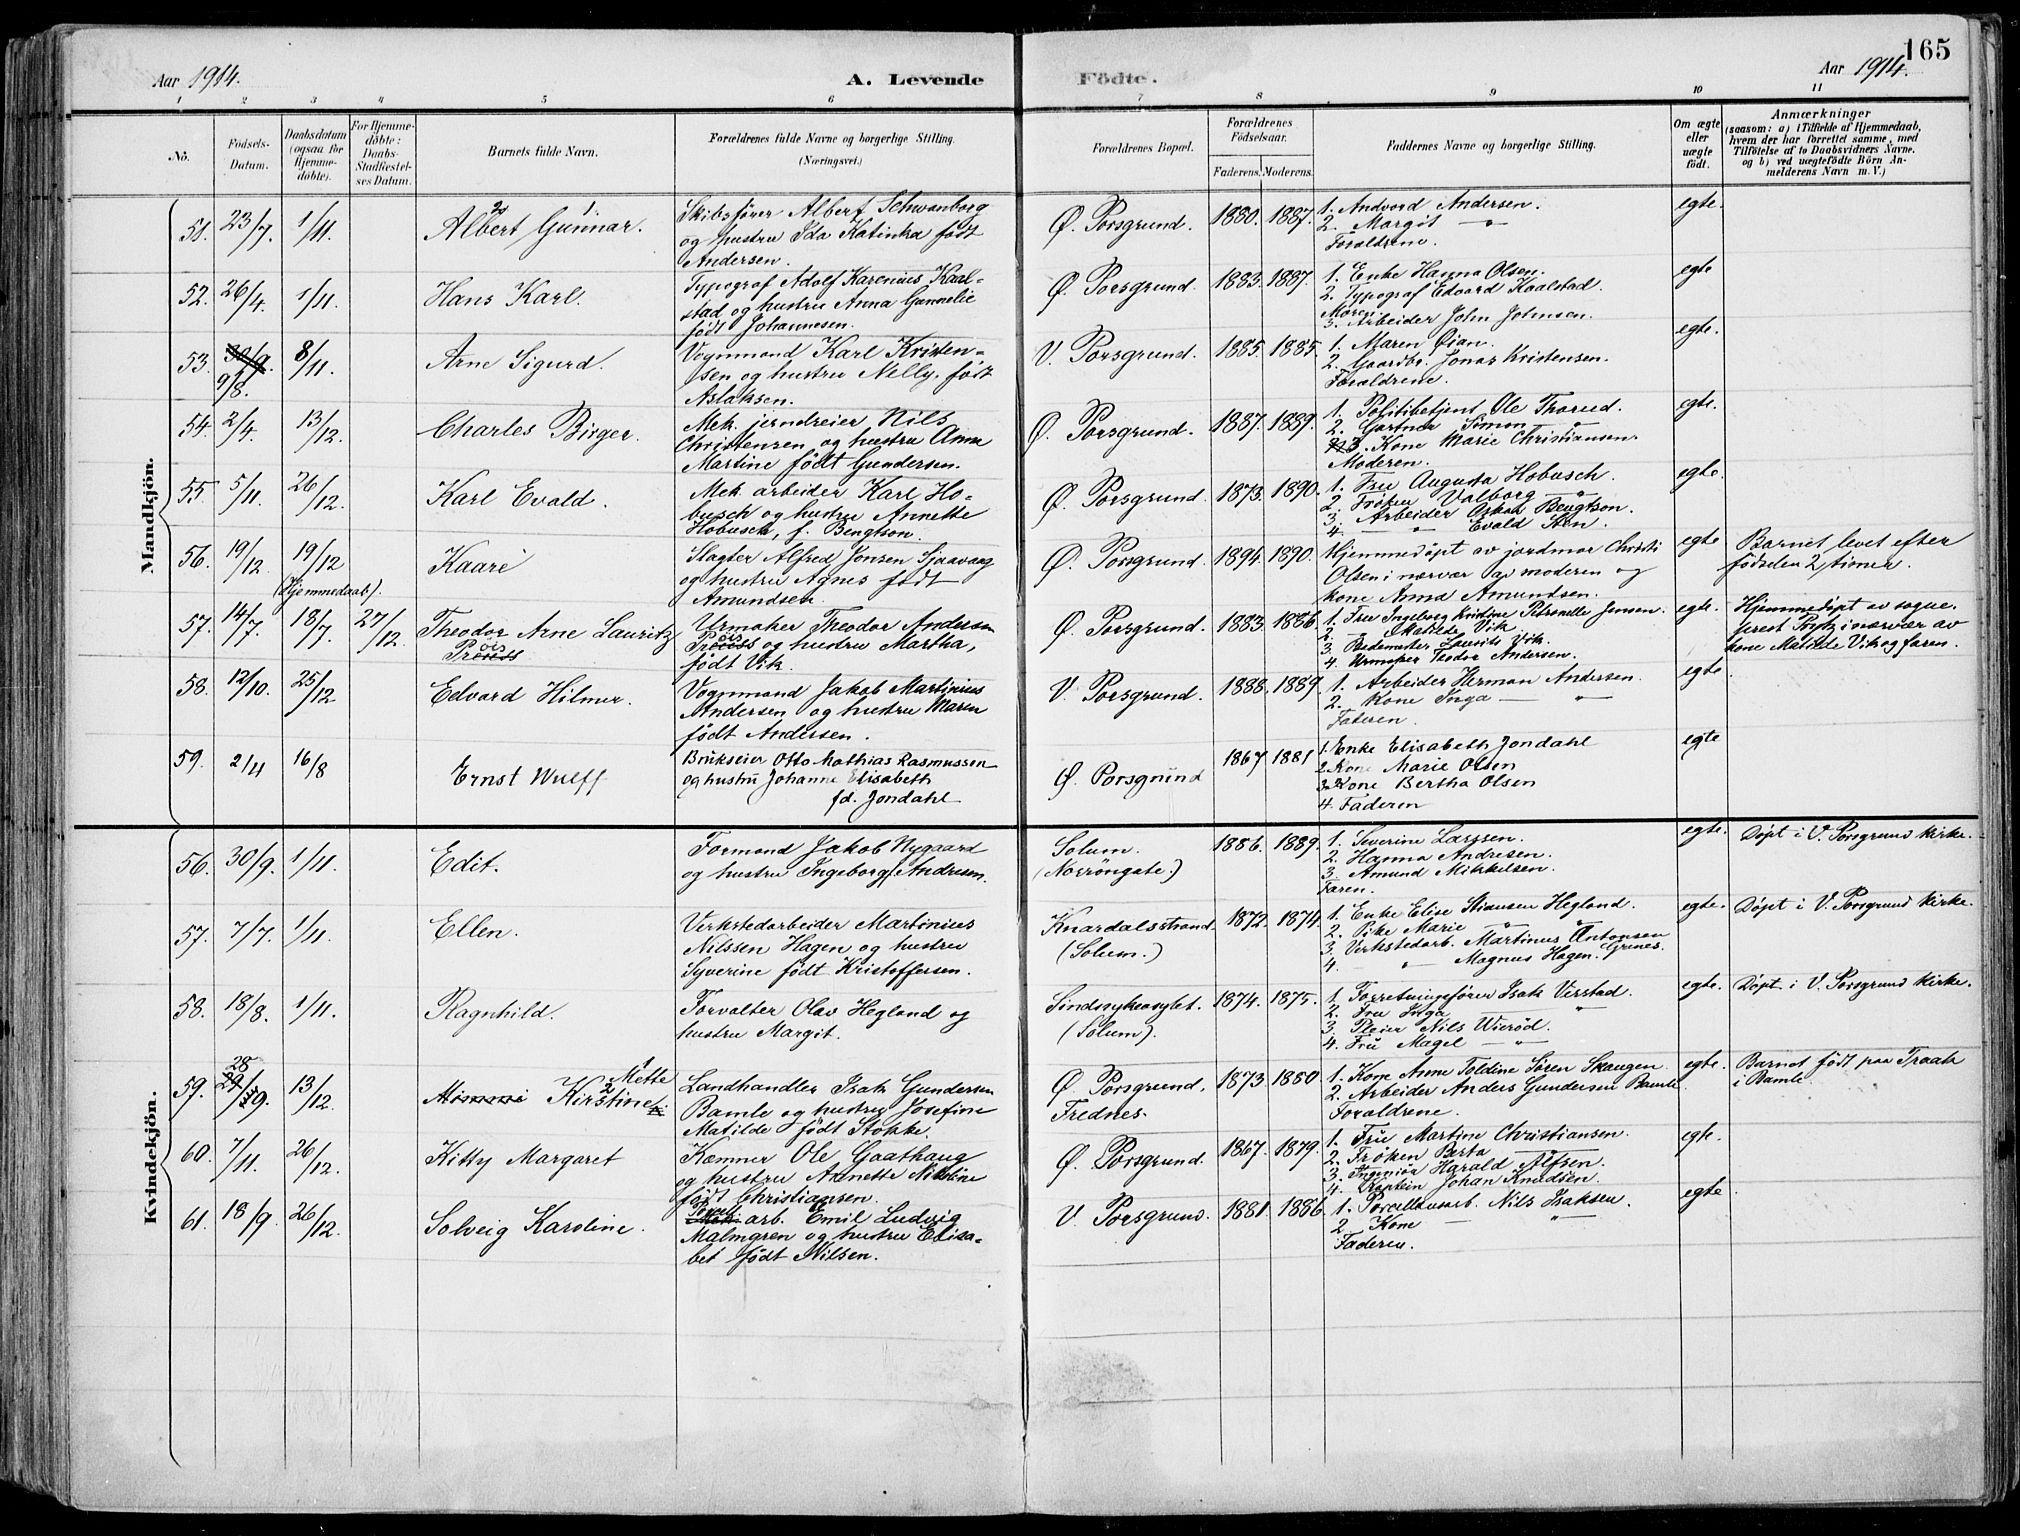 165
Aar 1914.
A. Levende Födte.
Aar 1914.
1 2 3 4 5 6 7 8 9 10 11
No.
Födsels-Datum.
Daabsdatum (ogsaa for Hjemme-döbte).
For Hjemme-döbte: Daabs-Stadfæstel-ses Datum.
Barnets fulde Navn.
Forældrenes fulde Navne og borgerlige Stilling. (Næringsvei.)
Forældrenes Bopæl.
Forældrenes Födselsaar.
Faderens. Moderens.
Faddernes Navne og borgerlige Stilling.
Om ægte eller uægte födt.
Anmærkninger
(saasom: a) i Tilfælde af Hjemmedaab, hvem der har forrettet samme, med Tilföielse af to Daabsvidners Navne, og b) ved uægtefödte Börn An-melderens Navn m. V.)
Mandkjön.
51. 23/7. 1/11. Albert 2 Gunnar. 1
Skibsfører Albert Schwanborg
og hustru Ida Katinka født
Andersen.
Ø. Porsgrund. 1880. 1887.
1. Andvord Andersen.
2. Margit — " —
Forældrene.
egte.
52. 26/4. 1/11. Hans Karl.
Typograf Adolf Karenius Kaal-
stad og hustru Anna Gunnelie
født Johannesen.
Ø. Porsgrund. 1883. 1887.
1. Enke Hanna Olsen.
2. Typograf Edvard Kaalstad.
Moren.
3. Arbeider John Johnsen.
egte
53. 30/9. 9/8. 8/11. Arne Sigurd.
Vognmand Karl Kristen-
sen og hustru Nelly, født
Aslaksen.
V. Porsgrund. 1885. 1885.
1. Maren Øian.
2. Gaardbr. Jonas Kristensen.
Forældrene.
egte.
54. 2/4. 13/12. Charles Birger.
Mek. jerndreier Nils
Christensen og hustru Anne
Martine født Gundersen.
Ø. Porsgrund. 1887. 1889.
1. Politibetjent Ole Thorud.
2. Gartner Simon "
3. Kone Marie Christiansen.
Moderen.
egte.
55. 5/11. 26/12. Karl Evald.
Mek. arbeider Karl Ho-
busch og hustru Annette
Hobusch, f. Bengtson.
Ø. Porsgrund. 1873. 1890.
1. Fru Augusta Hobusch.
2. Frøken Valborg — " —
3. Arbeider Oskar Bengtson.
4. " Evald Sten.
egte.
56. 19/12. 19/12 (Hjemmedaab). Kaare
Slagter Alfred Jonsen Sjaavaag
og hustru Agnes født
Amundsen.
Ø. Porsgrund. 1894. 1890.
Hjemmedøpt av jordmor Christi
Olsen i nærvær av moderen og
kone Anna Amundsen.
egte
Barnet levet efter
fødselen 2 timer.
57. 14/7. 18/7. 27/12. Theodor Arne Lauritz
Prøis
Urmaker Theodor Andersen
Prøis og hustru Martha,
født Vik.
Ø. Porsgrund. 1883. 1886.
1. Fru Ingeborg Kristine Petronelle Jensen.
2. — Matilde Vik.
3. Redemester Laurits Vik.
4. Urmaker Teodor Andersen.
egte.
Hjemmedøpt av sogne-
prest i nærvær av
kone Matilde Vik og faren.
58. 12/10. 25/12 Edvard Hilmer.
Vognmand Jakob Martinius
Andersen og hustru Maren
født Andersen.
V. Porsgrund. 1888. 1889.
1. Arbeider Herman Andersen.
2. Kone Inga — "
Faderen.
egte.
59. 2/4 16/8 Ernst Wulff
Brukseier Otto Mathias Rasmussen
og hustru Johanne Elisabeth
fd. Jondahl
Ø. Porsgrund 1867 1881
1. Enke Elisabeth Jondahl
2. Kone Marie Olsen
3. Kone Bertha Olsen
4. Faderen
egte
Kvindekjön.
56. 30/9. 1/11. Edit.
Formand Jakob Nygaard
og hustru Ingeborg Andresen.
Solum.
(Norrøngate.)
1886. 1889.
1. Severine Larssen.
2. Hanna Andresen.
3. Amund Mikkelsen.
Faren.
egte. Døpt i V. Porsgrund kirke.
57. 7/7. 1/11. Ellen.
Verkstedarbeider Martinius
Nilssen Hagen og hustru
Syverine født Kristoffersen.
Knardalsstrand
(Solum.)
1872. 1874.
1. Enke Elise Skiausen Hegland.
2. Pike Marie " "
3. Verkstedarb. Martinus Antonsen Grenes.
4. " Magnus Hagen.
egte. Døpt i V. Porsgrund kirke.
58. 18/8. 1/11. Ragnhild.
Forvalter Olav Hegland og
hustru Margit.
Sindssykeasylet.
(Solum).
1874. 1875.
1. Forretningsfører Isak Verstad.
2. Fru Inga "
3. Pleier Nils Wierød.
4. Fru Magel — " —
egte. Døpt i V. Porsgrund kirke.
59. 28 29/9. 13/12. Mette Kirstine 2
Landhandler Isak Gundersen
Bamle og hustru Josefine
Matilde født Stokke.
Ø Porsgrund.
Frednes.
1873. 1880.
1. Kone Anne Toldine Søren Skaugen
2. Arbeider Anders Gundersen Bamle.
Forældrene.
egte. Barnet født paa Traak
i Bamle.
60. 7/11. 26/12. Kitty Margaret
Kæmner Ole Gaathaug
og hustru Annette Nikoline
født Christiansen.
Ø. Porsgrund. 1867. 1879.
1. Fru Martine Christiansen.
2. Frøken Berta
3. Ingeniør Harald Alfsen.
4. Kaptein Johan Knudsen.
egte.
61. 18/9. 26/12. Solveig Karoline.
arb. Emil Ludvig
Malmgren og hustru Elisa-
bet født Nilsen.
V. Porsgrund. 1881. 1886.
1. Porcellænsarb. Nils Isaksen.
2. Kone — " —
Faderen.
egte